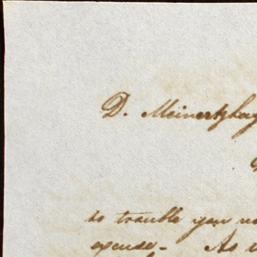 D. Meinertzhag
to trouble you
excuse - As